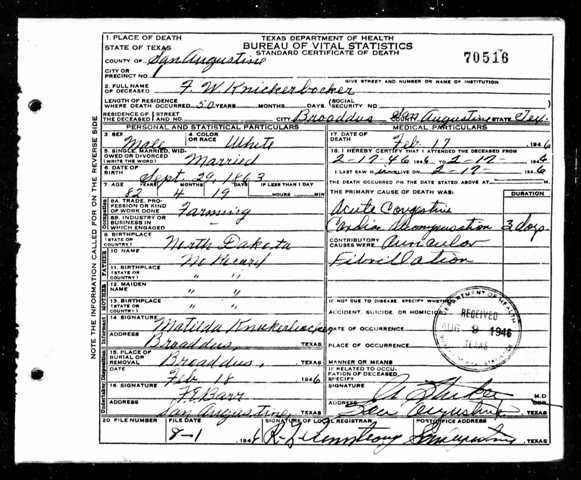 TEXAS DEPARTMENT OF HEALTH
BUREAU OF VITAL STATISTICS
STANDARD CERTIFICATE OF DEATH
70516
1. PLACE OF DEATH
STATE OF TEXAS
COUNTY OF San Augustine
CITY OR PRECINCT NO.
GIVE STREET AND NUMBER OR NAME OF INSTITUTION
2. FULL NAME OF DECEASED F. W. Knickerbocker
LENGTH OF RESIDENCE WHERE DEATH OCCURRED 50 YEARS MONTHS DAYS (SOCIAL SECURITY NO.
RESIDENCE OF THE DECEASED STREET AND NO. CITY Broaddus San Augustine STATE Tex.
PERSONAL AND STATISTICAL PARTICULARS
3. SEX Male
4. COLOR OR RACE White
5. SINGLE, MARRIED, WIDOWED OR DIVORCED (WRITE THE WORD) Married
6. DATE OF BIRTH Sept. 29, 1863
7. AGE YEARS MONTHS DAYS IF LESS THAN 1 DAY
82 4 19 HOURS MIN
8A. TRADE, PROFESSION OR KIND OF WORK DONE Farming
8B. INDUSTRY OR BUSINESS IN WHICH ENGAGED
9. BIRTHPLACE (STATE OR COUNTRY) North Dakota
10. NAME
11. BIRTHPLACE (STATE OR COUNTRY) " "
12. MAIDEN NAME " "
13. BIRTHPLACE (STATE OR COUNTRY) " "
14. SIGNATURE Matilda Knickerbocker
ADDRESS Broaddus, TEXAS
15. PLACE OF BURIAL OR REMOVAL Broaddus, TEXAS
DATE Feb. 18 1946
16. SIGNATURE F. E. Barr
ADDRESS San Augustine, TEXAS
MEDICAL PARTICULARS
17. DATE OF DEATH Feb. 17 1946
18. I HEREBY CERTIFY THAT I ATTENDED THE DECEASED FROM
2-17-46 TO 2-17- 1946
I LAST SAW H ALIVE ON 2-17- 1946
THE DEATH OCCURRED ON THE DATE STATED ABOVE AT M.
THE PRIMARY CAUSE OF DEATH WAS: DURATION
Acute Congestive
Cardiac Decompensation 3 days
CONTRIBUTORY CAUSES WERE Auricular
Fibrillation
IF NOT DUE TO DISEASE, SPECIFY WHETHER
ACCIDENT, SUICIDE, OR HOMICIDE
DATE OF OCCURRENCE
PLACE OF OCCURRENCE
MANNER OR MEANS
IF RELATED TO OCCUPATION OF DECEASED, SPECIFY
SIGNATURE M.D.
ADDRESS San Augustine TEXAS
DEPARTMENT OF HEALTH
RECEIVED
AUG 9 1946
TEXAS
20. FILE NUMBER FILE DATE SIGNATURE OF LOCAL REGISTRAR POSTOFFICE ADDRESS
8-1 1946 San Augustine TEXAS
NOTE THE INFORMATION CALLED FOR ON THE REVERSE SIDE
Occupation
FATHER
MOTHER
Informant
Undertaker